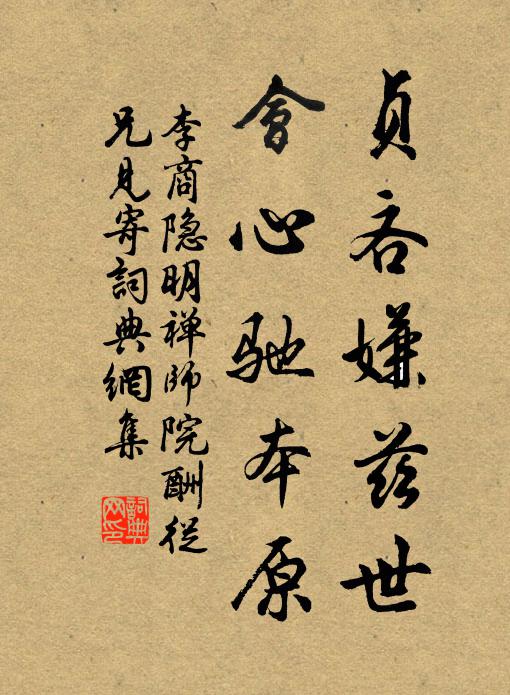 貞吝嫌茲世
會心馳本原
李商隐明禅師院酬從
兄見寄詞典網集
詞典
网印